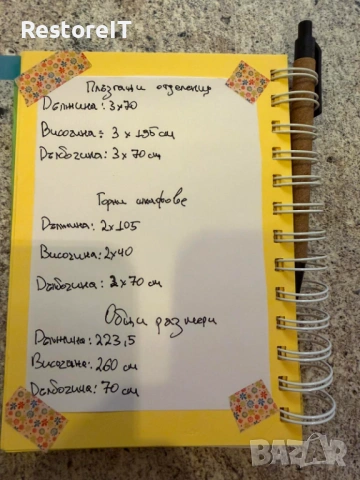 RestoreIT
Плъзгащи отделения
Дължина: 3x70
Височина: 3 x 195 см
Дълбочина: 3x 70 см
Горни шкафове
Дължина: 2x105
Височина: 2x40
Дълбочина: 2x70 см
Общи размери
Дължина: 223,5
Височина: 260 см
Дълбочина: 70 см
BAZAR
bg